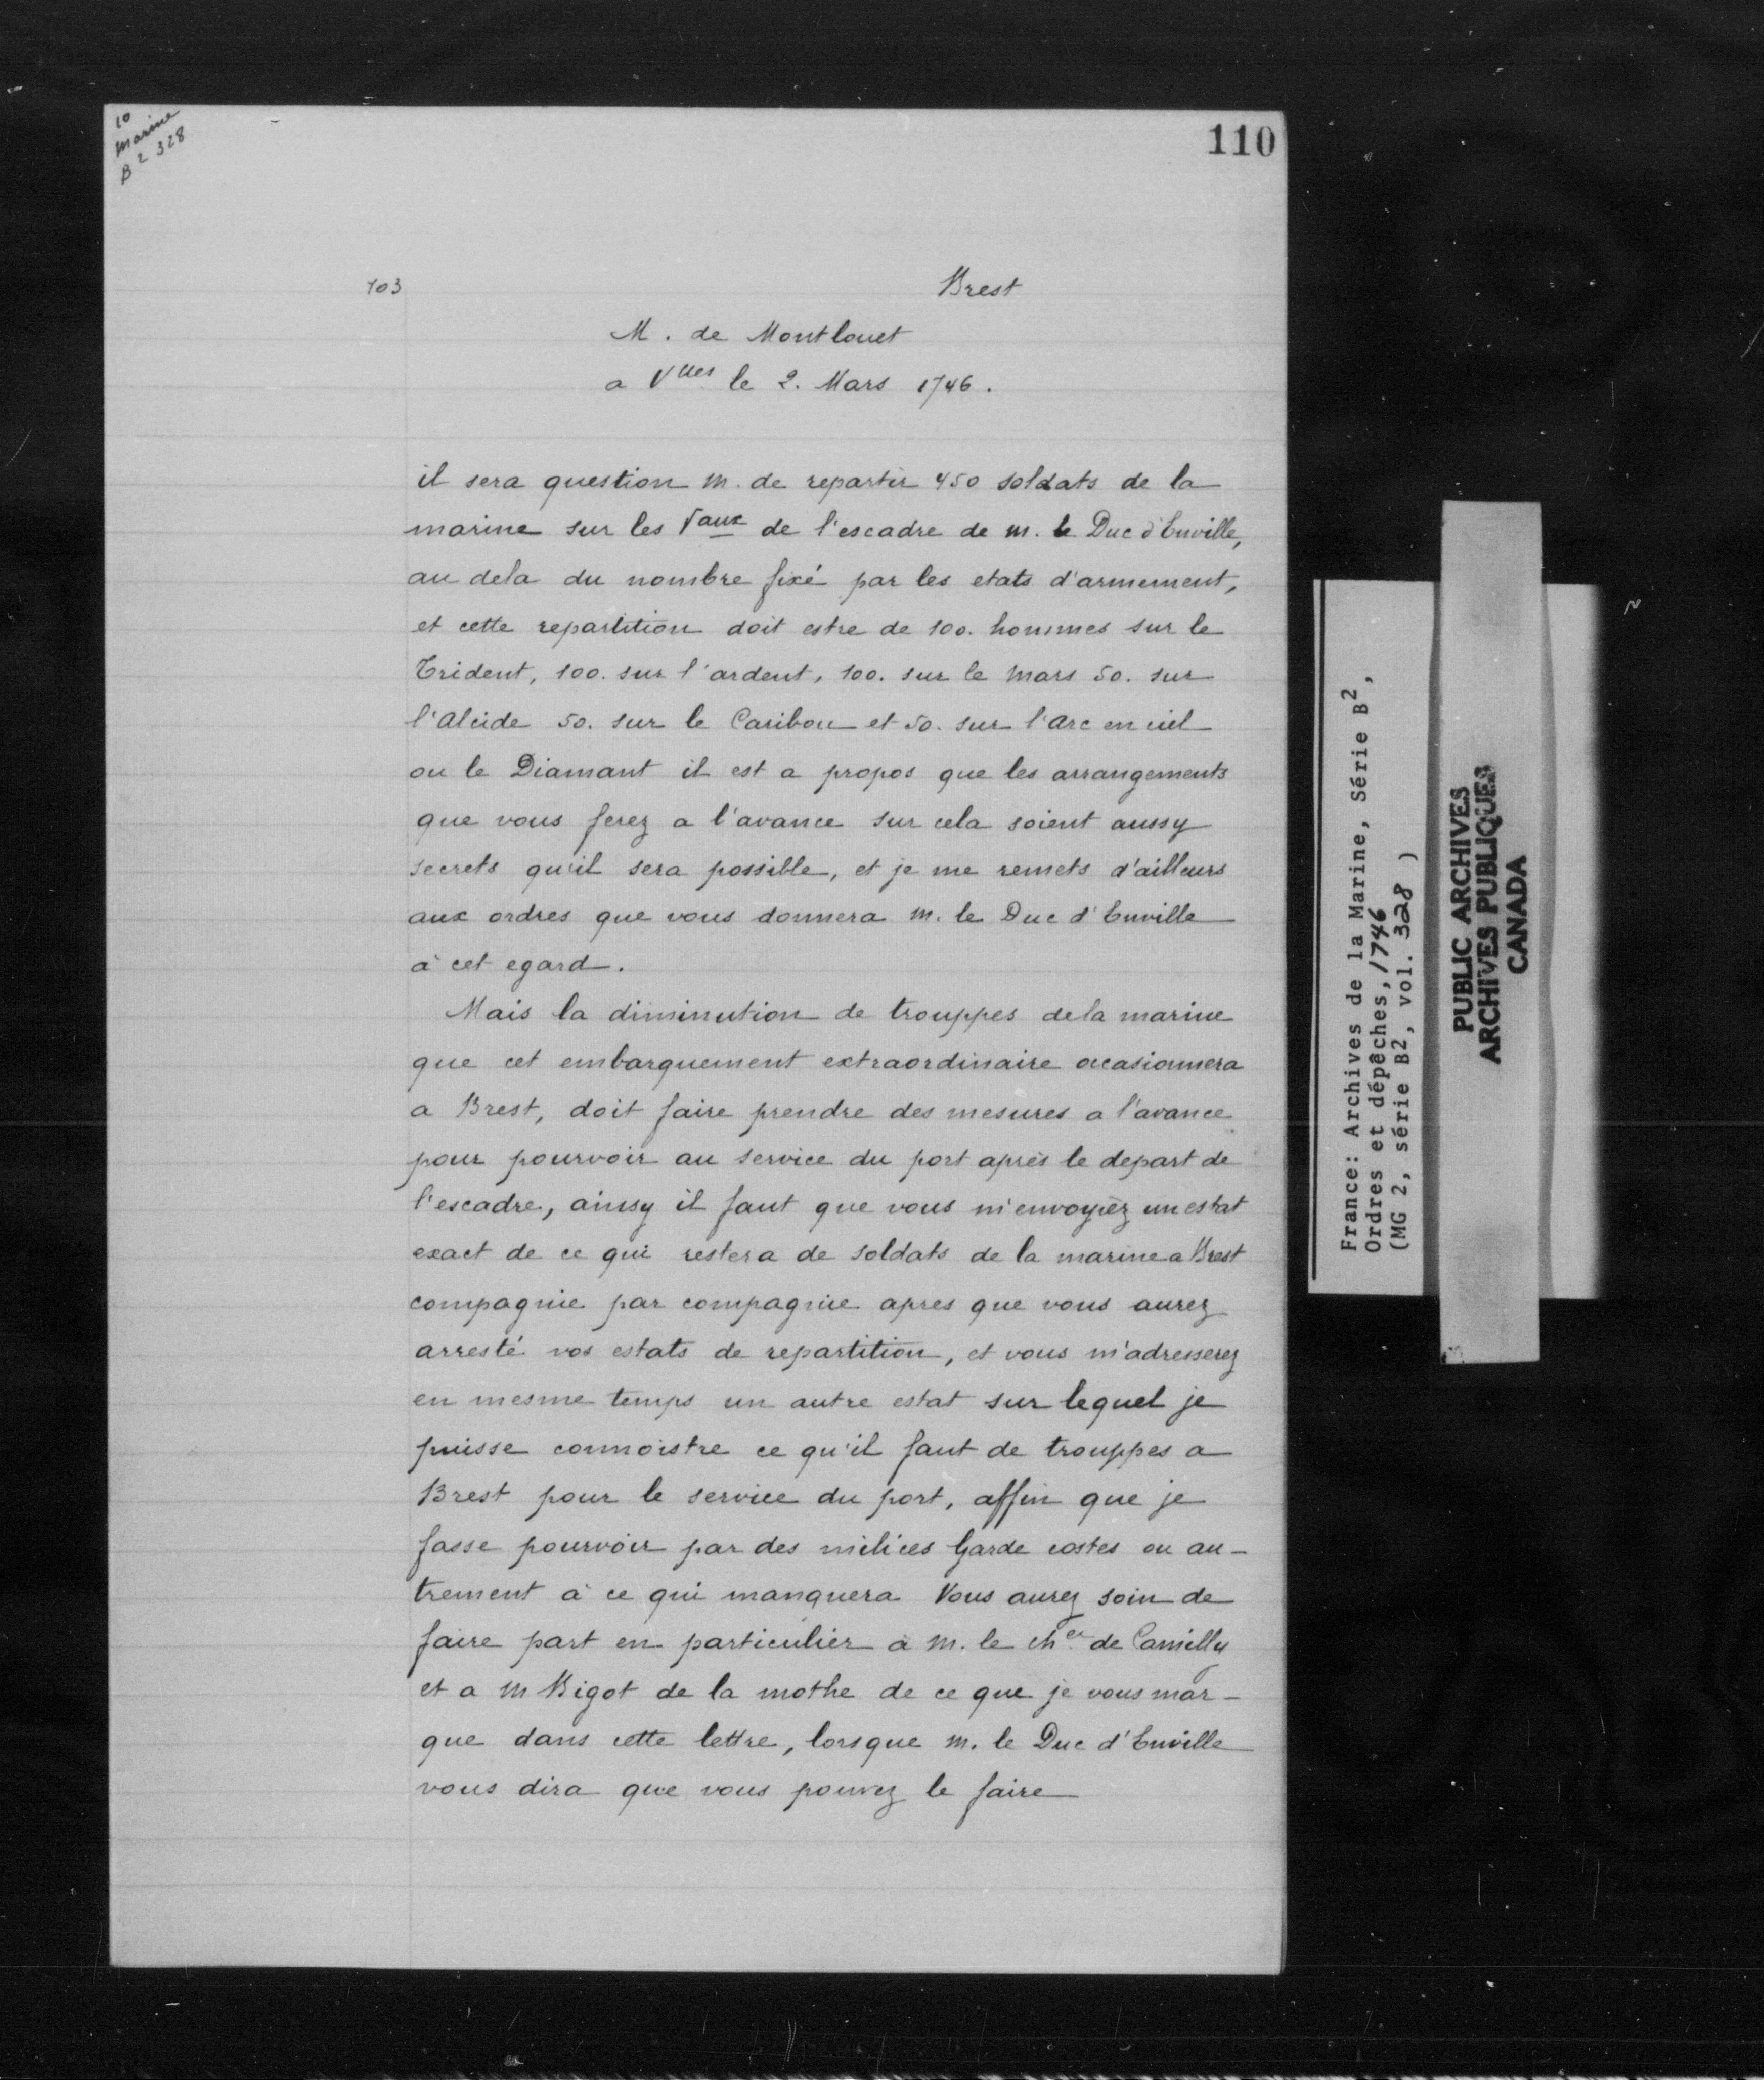 10
Marine
B2 328
110
103
Brest
M. de Montlouet
a Vlles le 2. Mars 1746.
il sera question m. de repartir 450 soldats de la
marine sur les Vaux de l'escadre de m. le Duc d'Enville,
au dela du nombre fixé par les etats d'armement,
et cette repartition doit estre de 100. hommes sur le
Trident, 100. sur l'ardent, 100. sur le Mars 50. sur
l'Alcide 50. sur le Caribou et 50. sur l'Arc en ciel
ou le Diamant il est a propos que les arrangements
que vous ferez a l'avance sur cela soient aussy
secrets qu'il sera possible, et je me remets d'ailleurs
aux ordres que vous donnera m. le Duc d'Enville
à cet egard.
Mais la diminution de trouppes dela marine
que cet embarquement extraordinaire occasionnera
a Brest, doit faire prendre des mesures a l'avance
pour pourvoir au service du port après le depart de
l'escadre, ainsy il faut que vous m'envoyiez un estat
exact de ce qui restera de soldats de la marine a Brest
compagnie par compagnie apres que vous aurez
arresté vos estats de repartition, et vous m'adresserez
en mesme temps un autre estat sur lequel je
puisse connoistre ce qu'il faut de trouppes a
Brest pour le service du port, affin que je
fasse pourvoir par des milices Garde costes ou au-
trement à ce qui manquera Vous aurez soin de
faire part en particulier à m. le cher de Camilly
et a M Bigot de la mothe de ce que je vous mar-
que dans cette lettre, lorsque m. le Duc d'Enville
vous dira que vous pouvez le faire
France: Archives de la Marine, Série B2,
Ordres et dépêches, 1746
(MG 2, série B2, vol. 328 )
PUBLIC ARCHIVES
ARCHIVES PUBLIQUES
CANADA